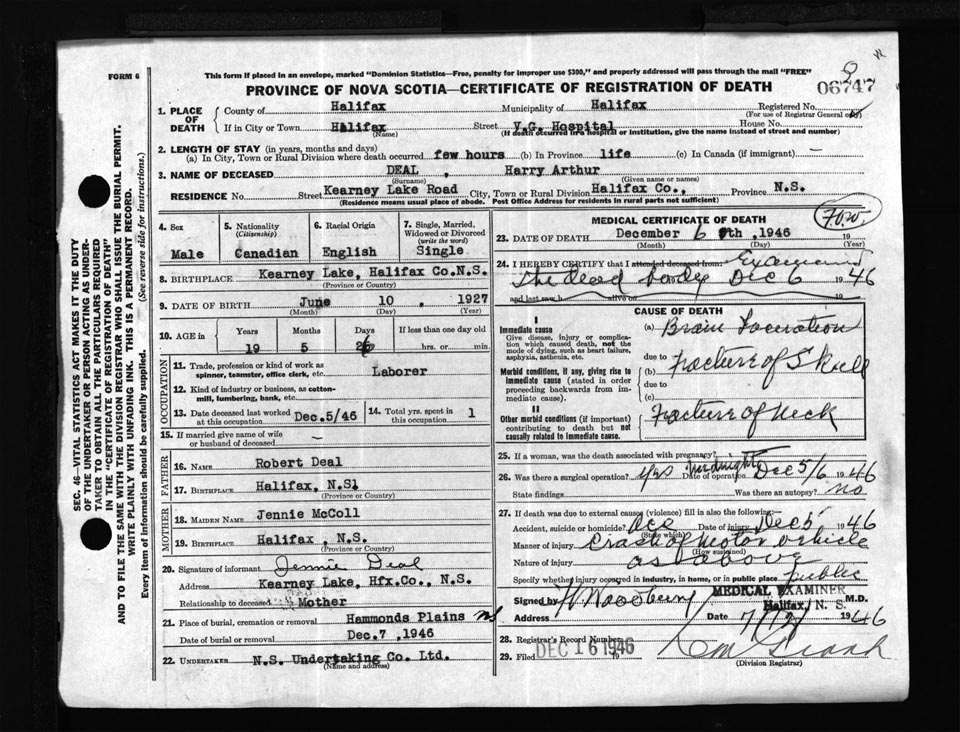 FORM 6
This form if placed in an envelope, marked "Dominion Statistics—Free, penalty for improper use $300," and properly addressed will pass through the mail "FREE"
PROVINCE OF NOVA SCOTIA—CERTIFICATE OF REGISTRATION OF DEATH
06747
SEC. 46—VITAL STATISTICS ACT MAKES IT THE DUTY
OF THE UNDERTAKER OR PERSON ACTING AS UNDER-
TAKER TO OBTAIN ALL THE PARTICULARS REQUIRED
IN THE "CERTIFICATE OF REGISTRATION OF DEATH"
AND TO FILE THE SAME WITH THE DIVISION REGISTRAR WHO SHALL ISSUE THE BURIAL PERMIT.
WRITE PLAINLY WITH UNFADING INK. THIS IS A PERMANENT RECORD.
Every item of information should be carefully supplied. (See reverse side for instructions.)
1. PLACE OF DEATH
County of Halifax Municipality of Halifax Registered No.
(For use of Registrar General only)
If in City or Town Halifax Street V.G. Hospital House No.
(Name) (If death occurred in a hospital or institution, give the name instead of street and number)
2. LENGTH OF STAY (in years, months and days)
(a) In City, Town or Rural Division where death occurred few hours (b) In Province life (c) In Canada (if immigrant) —
3. NAME OF DECEASED DEAL , Harry Arthur
(Surname) (Given name or names)
RESIDENCE No. Street Kearney Lake Road City, Town or Rural Division Halifax Co., Province N.S.
(Residence means usual place of abode. Post Office Address for residents in rural parts not sufficient)
4. Sex
Male
5. Nationality
(Citizenship)
Canadian
6. Racial Origin
English
7. Single, Married,
Widowed or Divorced
(write the word)
Single
8. BIRTHPLACE Kearney Lake, Halifax Co.N.S.
(Province or Country)
9. DATE OF BIRTH June 10 , 1927
(Month) (Day) (Year)
10. AGE in
Years Months Days If less than one day old
19 5 26 hrs. or min.
OCCUPATION
11. Trade, profession or kind of work as
spinner, teamster, office clerk, etc. Laborer
12. Kind of industry or business, as cotton-
mill, lumbering, bank, etc.
13. Date deceased last worked
at this occupation Dec.5/46
14. Total yrs. spent in
this occupation 1
15. If married give name of wife
or husband of deceased —
FATHER
16. NAME Robert Deal
17. BIRTHPLACE Halifax, N.S.
(Province or Country)
MOTHER
18. MAIDEN NAME Jennie McColl
19. BIRTHPLACE Halifax , N.S.
(Province or Country)
20. Signature of informant Jennie Deal
Address Kearney Lake, Hfx.Co., N.S.
Relationship to deceased Mother
21. Place of burial, cremation or removal Hammonds Plains NS
Date of burial or removal Dec.7 ,1946
22. UNDERTAKER N.S. Undertaking Co. Ltd.
(Name and address)
MEDICAL CERTIFICATE OF DEATH
23. DATE OF DEATH December 6 th ,1946 19
(Month) (Day) (Year)
24. I HEREBY CERTIFY that I attended deceased from: Examined
the dead body Dec 6 1946
and last saw h alive on
CAUSE OF DEATH
I
Immediate cause
Give disease, injury or complica-
tion which caused death, not the
mode of dying, such as heart failure,
asphyxia, asthenia, etc.
(a) Brain Laceration
due to
Morbid conditions, if any, giving rise to
immediate cause (stated in order
proceeding backwards from im-
mediate cause).
(b) Fracture of Skull
due to
(c)
II
Other morbid conditions (if important)
contributing to death but not
causally related to immediate cause.
Fracture of Neck
25. If a woman, was the death associated with pregnancy?
26. Was there a surgical operation? yes Date of operation midnight Dec 5/6 1946
State findings Was there an autopsy? no
27. If death was due to external causes (violence) fill in also the following—
Accident, suicide or homicide? Acc Date of injury Dec 5 1946
(State which)
Manner of injury Crash of motor vehicle
(How sustained)
Nature of injury as above
Specify whether injury occurred in industry, in home, or in public place public
Signed by M.D.
MEDICAL EXAMINER
Halifax, N. S.
Date 7/12/ 1946
28. Registrar's Record Number
29. Filed DEC 16 1946 19
(Division Registrar)